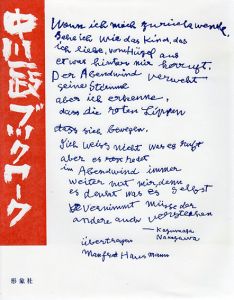 中川一政ブックワーク
形象社
Wenn ich mich zurückwende,
sehe ich wie das Kind, das
ich liebe, vom Hügel aus
etwas hinter mir her ruft.
Der Abendwind verweht
seine Stimme
aber ich erkenne,
dass die roten Lippen
dass sich bewegen.
Ich weiss nicht was es ruft
aber es
im Abendwind immer
weiter
es denkt was es selbst
vernimmt müsse der
andere auch verstehen
— Kazumasa
Nakagawa
übertragen
Manfred Hausmann